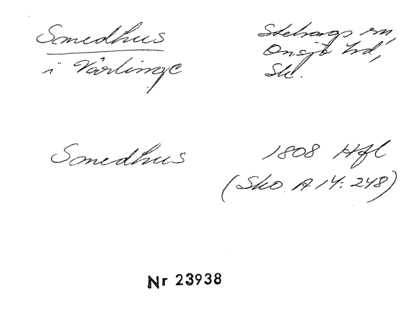 Smedhus
i Vårlinge
Stehags sn,
Onsjö hd,
Sk.
Smedhus
1808 Hfl
(Sko A 14: 248)
Nr 23938